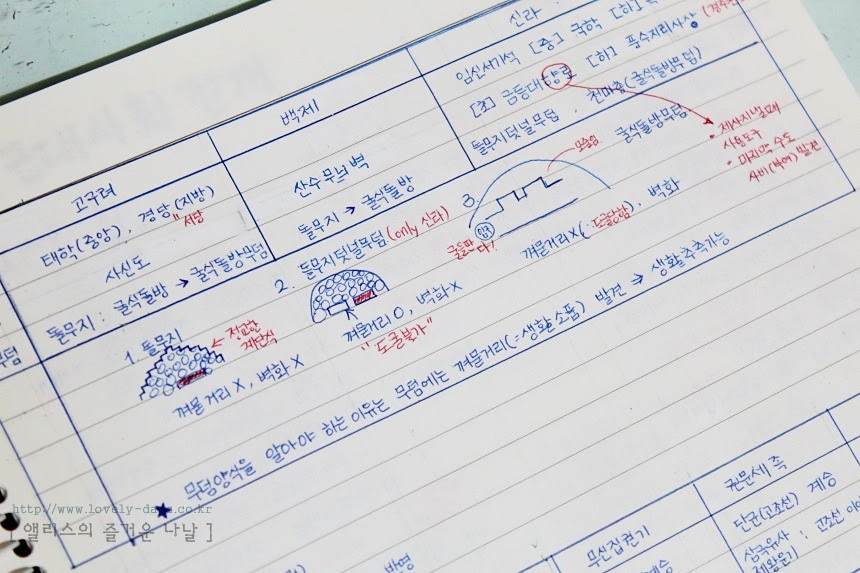 신라
임신서기석 [중] 국학 [하]
[초] 금동대향로 [하] 풍수지리사상
돌무지덧널무덤 . 천마총(굴식돌방무덤)
• 제사지낼때
사용도구
• 마지막 수도
사비(부여) 발견
백제
산수무늬벽
돌무지 → 굴식돌방
고구려
태학(중앙) , 경당(지방)
서당
사신도
돌무지 : 굴식돌방 → 굴식돌방무덤
무덤
1. 돌무지
껴묻거리 X , 벽화 X
2. 돌무지덧널무덤(only 신라)
껴묻거리 O , 벽화 X
"도굴불가"
3. 굴식돌방무덤
모줄임
입구
껴묻거리X(∵도굴당함) . 벽화
★ 무덤양식을 알아야 하는 이유는 무덤에는 껴묻거리(=생활소품) 발견 ⇒ 생활추측가능
권문세족
단군(고조선) 계승
삼국유사 : 고조선
제왕운기
무신집권기
계승
반영
http://www.lovely-da
.co.kr
[ 앨리스의 즐거운 나날 ]